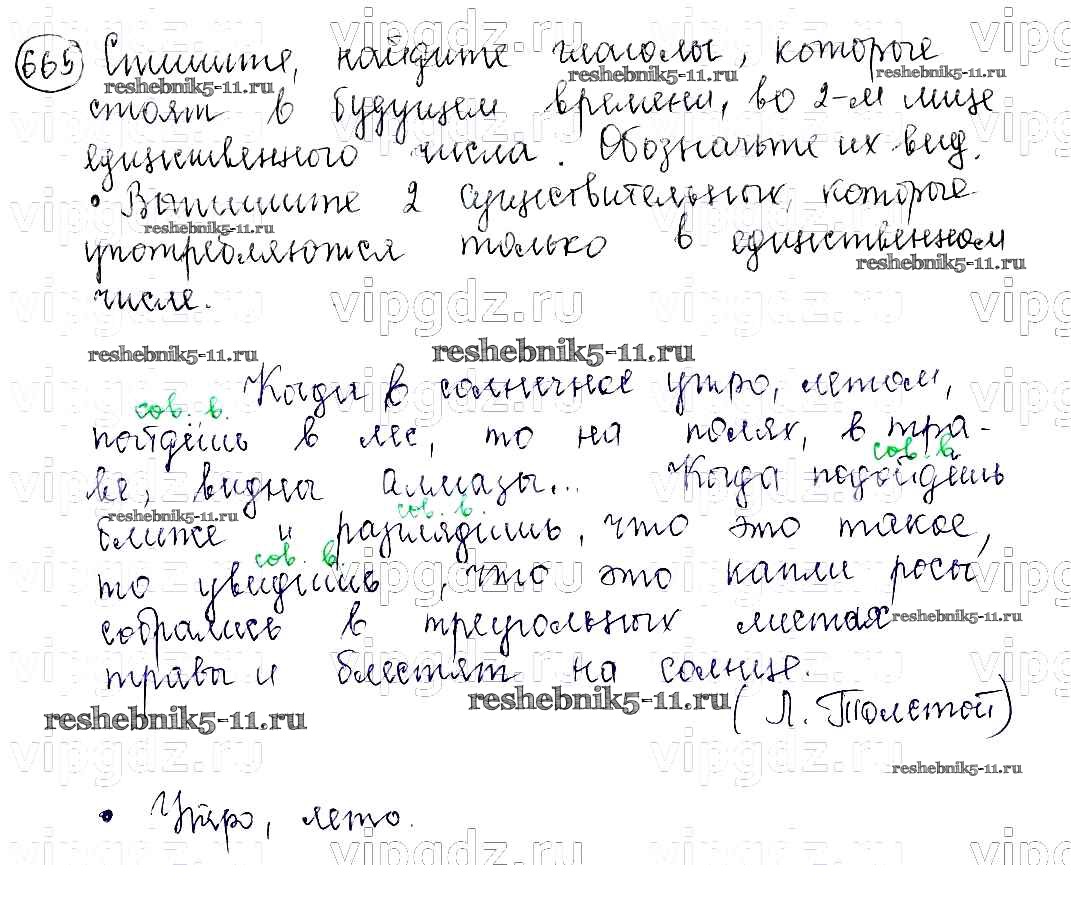 665 Спишите, найдите глаголы, которые
стоят в будущем времени, во 2-м лице
единственного числа. Обозначьте их вид.
• Выпишите 2 существительных, которые
употребляются только в единственном
числе.
reshebnik5-11.ru reshebnik5-11.ru
Когда в солнечное утро, летом,
сов. в.
пойдёшь в лес, то на полях, в тра-
сов. в
ве, видны алмазы... Когда подойдёшь
сов. в.
ближе и разглядишь, что это такое,
сов. в
то увидишь, что это капли росы
собрались в треугольных листах
травы и блестят на солнце.
(Л. Толстой)
reshebnik5-11.ru reshebnik5-11.ru
reshebnik5-11.ru
• Утро, лето.
vipgdz.ru vipgdz.ru